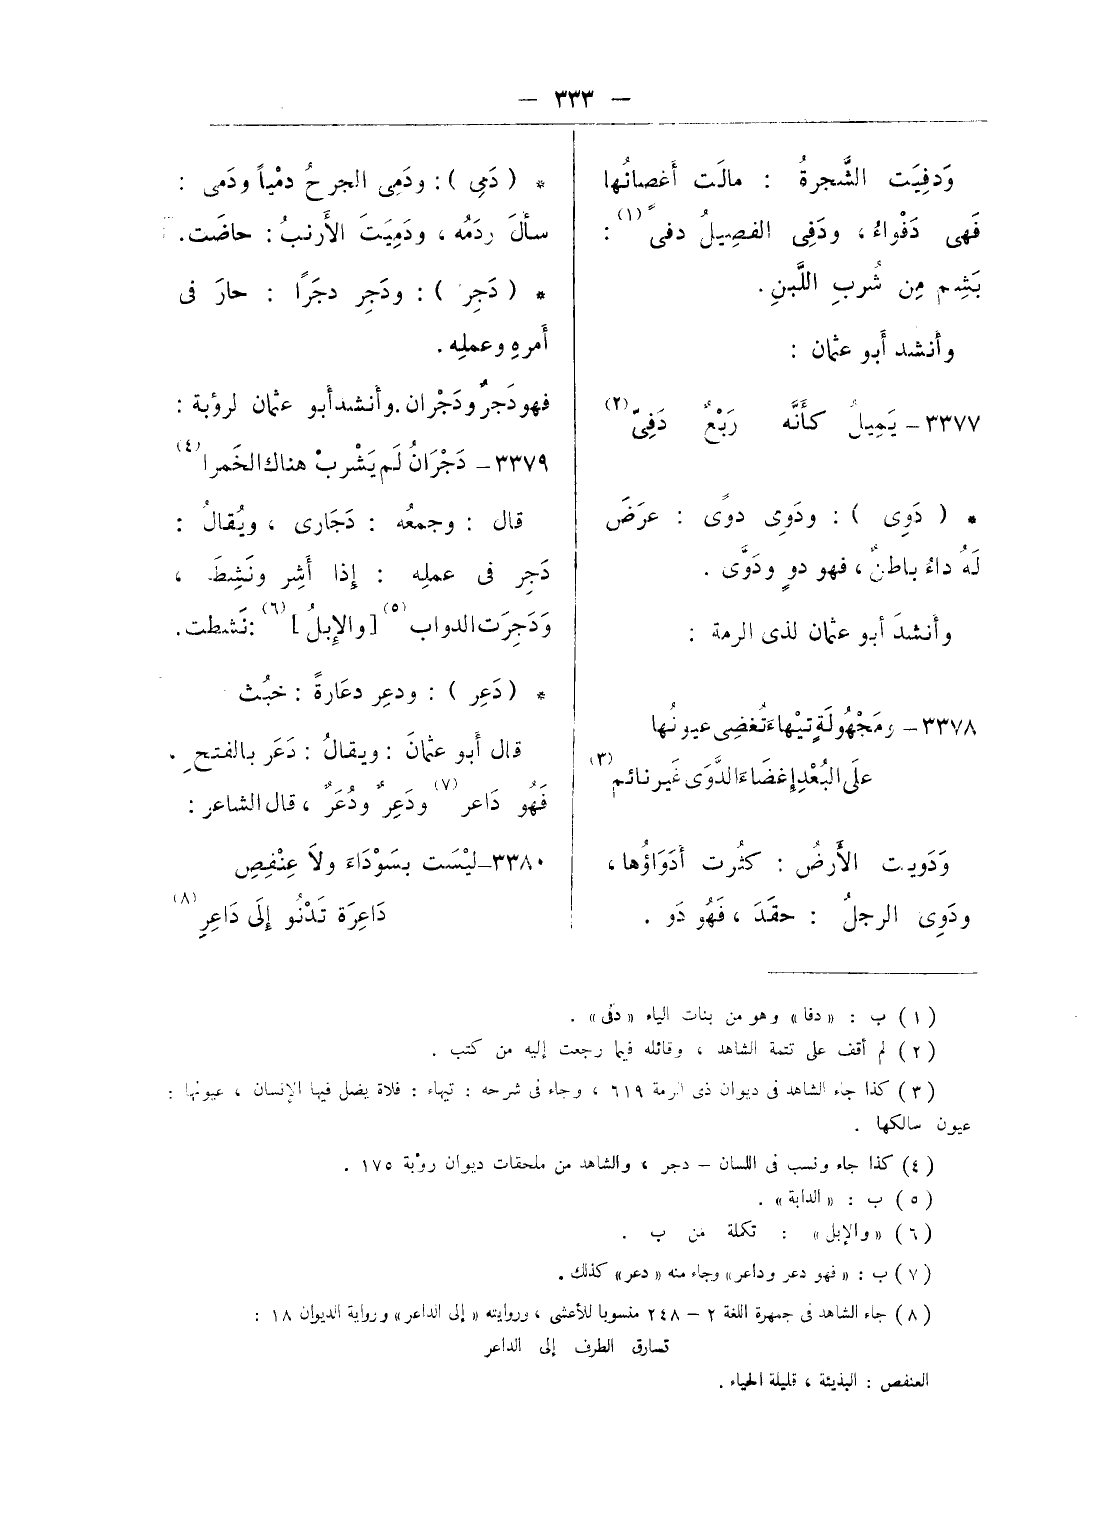 — ٣٣٣ —
وَدفِيَت الشَّجرةُ : مالَت أغصانُها
فَهى دَفْواءُ ، ودَفِى الفصِيلُ دفىً (١) :
بَشِم مِن شُربِ اللَّبنِ .
وأنشد أبو عثمان :
٣٣٧٧ – يَمِيلُ كأَنَّه رَبْعٌ دَفِىّ (٢)
* ( دَوِى ) : ودَوِى دوًى : عرَضَ
لَهُ داءُ باطنٌ ، فهو دوٍ ودَوًى .
وأنشدَ أبو عثمان لذى الرمة :
٣٣٧٨ – ومَجْهُولَةٍ تيْهاءَ تُغضِى عيونُها
علَى البُعْدِ إغضَاءَ الدَّوَى غَيرنائم (٣)
وَدَويت الأَرضُ : كثُرت أدَوَاؤُها ،
ودَوِى الرجلُ : حقَدَ ، فَهُو دَو .
* ( دَمِى ) : ودَمِى الجرحُ دمْياً ودَمى :
سألَ ردَمُه ، ودَمِيَتَ الأَرنبُ : حاضَت .
* ( دَجِر ) : ودَجِر دجَرًا : حارَ فى
أمرِهِ وعملِه .
فهو دَجرٌ ودَجْران . وأنشد أبو عثمان لرؤبة :
٣٣٧٩ – دَجْرَانُ لَم يَشْربْ هناك الخَمرا (٤)
قال : وجمعُه : دَجَارى ، ويُقالُ :
دَجِر فى عملِه : إذا أشِر ونَشِطَ ،
وَدَجِرَت الدواب (٥) [ والإبلُ ] (٦) : نَشطت .
* ( دَعِر ) : ودعِر دعَارةً : خبُث
قال أبو عثمَانَ : ويقالُ : دَعَر بالفتحِ .
فَهُو دَاعر (٧) ودَعِرٌ ودُعَرٌ ، قال الشاعر :
٣٣٨٠ – ليْسَت بسَوْدَاءَ ولاَ عِنْفِصِ
دَاعِرَة تَدْنُو إلَى دَاعِرِ (٨)
(١) ب : « دفا » وهو من بنات الياء « دفى » .
(٢) لم أقف على تتمة الشاهد ، وقائله فيما رجعت إليه من كتب .
(٣) كذا جاء الشاهد فى ديوان ذى الرمة ٦١٩ ، وجاء فى شرحه : تيهاء : فلاة يضل فيها الإنسان ، عيونها :
عيون سالكها .
(٤) كذا جاء ونسب فى اللسان – دجر ، والشاهد من ملحقات ديوان رؤبة ١٧٥ .
(٥) ب : « الدابة » .
(٦) « والإبل » : تكملة من ب .
(٧) ب : « فهو دعر وداعر » وجاء منه « دعر » كذلك .
(٨) جاء الشاهد فى جمهرة اللغة ٢ – ٢٤٨ منسوبا للأعشى ، وروايته « إلى الداعر » ورواية الديوان ١٨ :
تسارق الطرف إلى الداعر
العنفص : البذيئة ، قليلة الحياء .